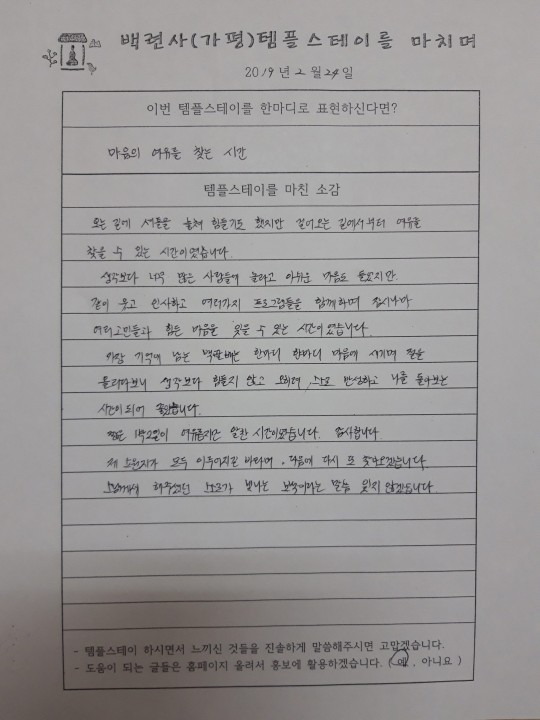 백련사(가평)템플스테이를 마치며
2019년 2월 24일
이번 템플스테이를 한마디로 표현하신다면?
마음의 여유를 찾는 시간
템플스테이를 마친 소감
오는 길에 셔틀을 놓쳐 힘들기도 했지만 걸어오는 길에서부터 여유를
찾을 수 있는 시간이었습니다.
생각보다 너무 많은 사람들에 놀라고 아쉬운 마음도 들었지만.
같이 웃고 인사하고 여러가지 프로그램들을 함께하며 잠시나마
여러고민들과 힘든 마음을 잊을 수 있는 시간이었습니다.
가장 기억에 남는 백팔배는 한마디 한마디 마음에 새기며 절을
올리다보니 생각보다 힘들지 않고 오히려 스스로 반성하고 나를 돌아보는
시간이 되어 좋았습니다.
짧은 1박2일이 여유롭지만 알찬 시간이었습니다. 감사합니다.
제 소원지가 모두 이루어지길 바라며, 다음에 다시 또 찾아오겠습니다.
스님께서 해주셨던 스스로가 빛나는 보석이라는 말씀 잊지 않겠습니다.
- 템플스테이 하시면서 느끼신 것들을 진솔하게 말씀해주시면 고맙겠습니다.
- 도움이 되는 글들은 홈페이지 올려서 홍보에 활용하겠습니다. ( 예 , 아니요 )